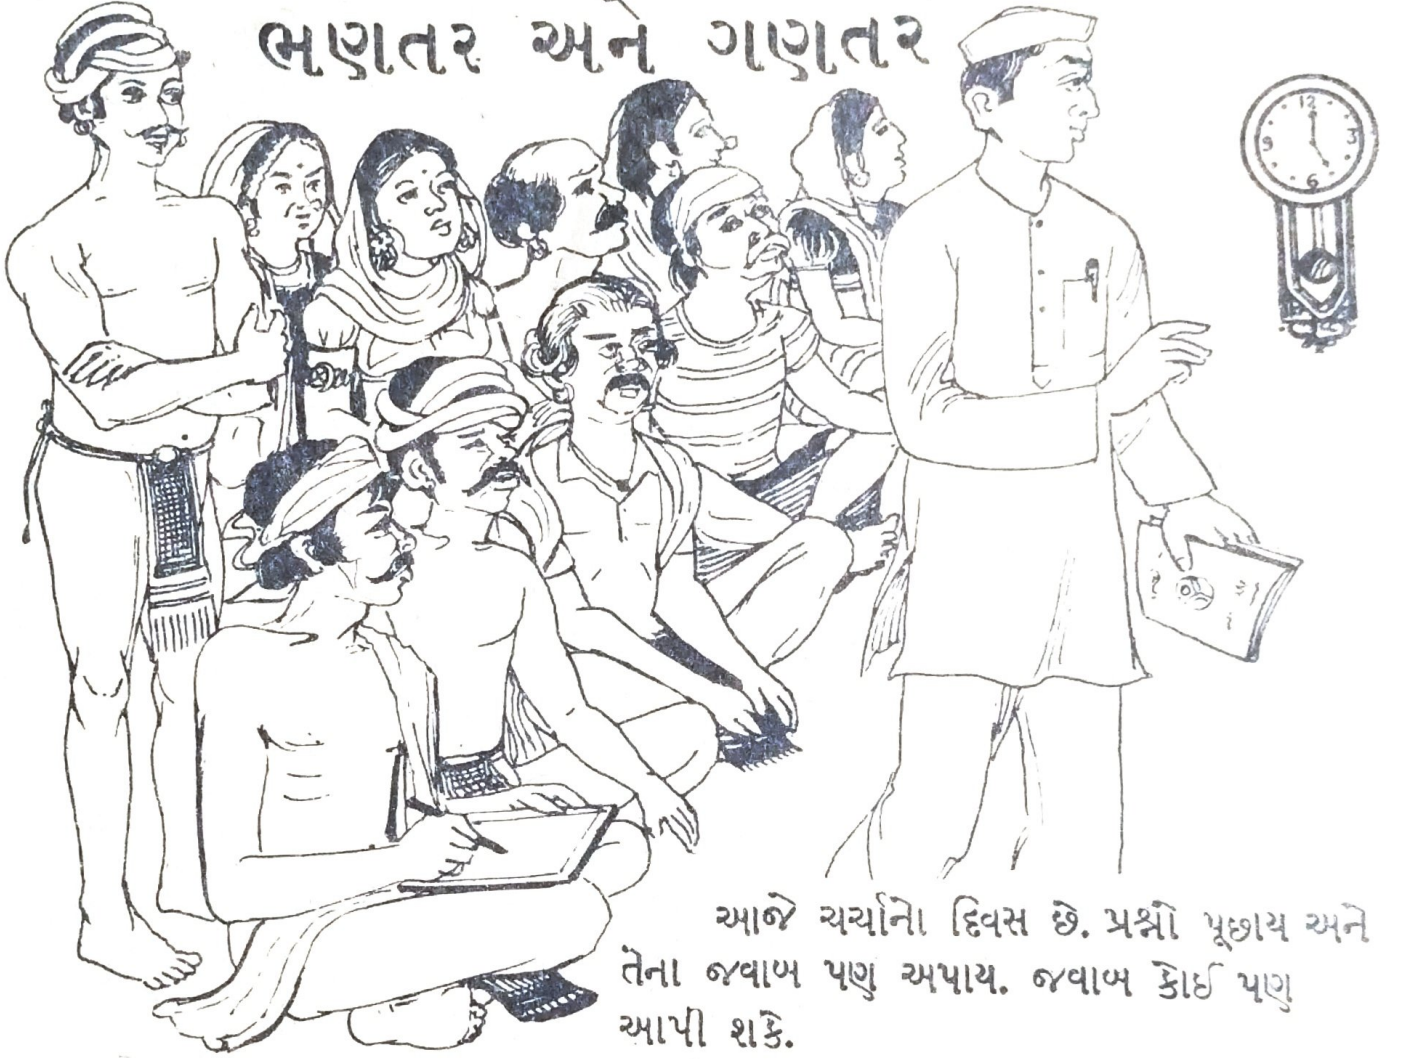 ભણતર અને ગણતર
12
9 3
6
આજે ચર્ચાનો દિવસ છે. પ્રશ્નો પૂછાય અને
તેના જવાબ પણ અપાય. જવાબ કોઈ પણ
આપી શકે.